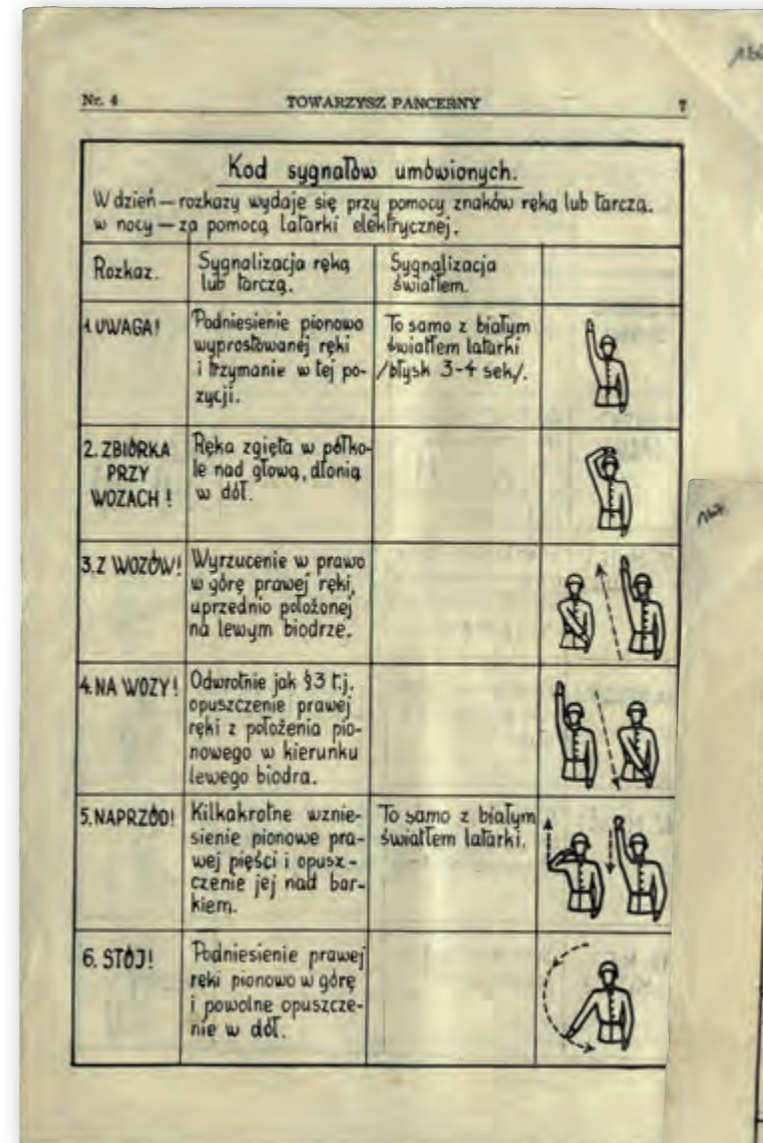 Nr. 4 TOWARZYSZ PANCERNY 7
Kod sygnałów umówionych.
W dzień — rozkazy wydaje się przy pomocy znaków ręką lub tarczą.
w nocy — za pomocą latarki elektrycznej.
Rozkaz.
Sygnalizacja ręką
lub tarczą.
Sygnalizacja
światłem.
1. UWAGA!
Podniesienie pionowo
wyprostowanej ręki
i trzymanie w tej po-
zycji.
To samo z białym
światłem latarki
/błysk 3-4 sek/.
2. ZBIÓRKA
PRZY
WOZACH !
Ręka zgięta w półko-
le nad głową, dłonią
w dół.
3. Z WOZÓW!
Wyrzucenie w prawo
w górę prawej ręki,
uprzednio położonej
na lewym biodrze.
4. NA WOZY!
Odwrotnie jak §3 t.j.
opuszczenie prawej
ręki z położenia pio-
nowego w kierunku
lewego biodra.
5. NAPRZÓD!
Kilkakrotne wznie-
sienie pionowe pra-
wej pięści i opusz-
czenie jej nad bar-
kiem.
To samo z białym
światłem latarki.
6. STÓJ!
Podniesienie prawej
ręki pionowo w górę
i powolne opuszcze-
nie w dół.